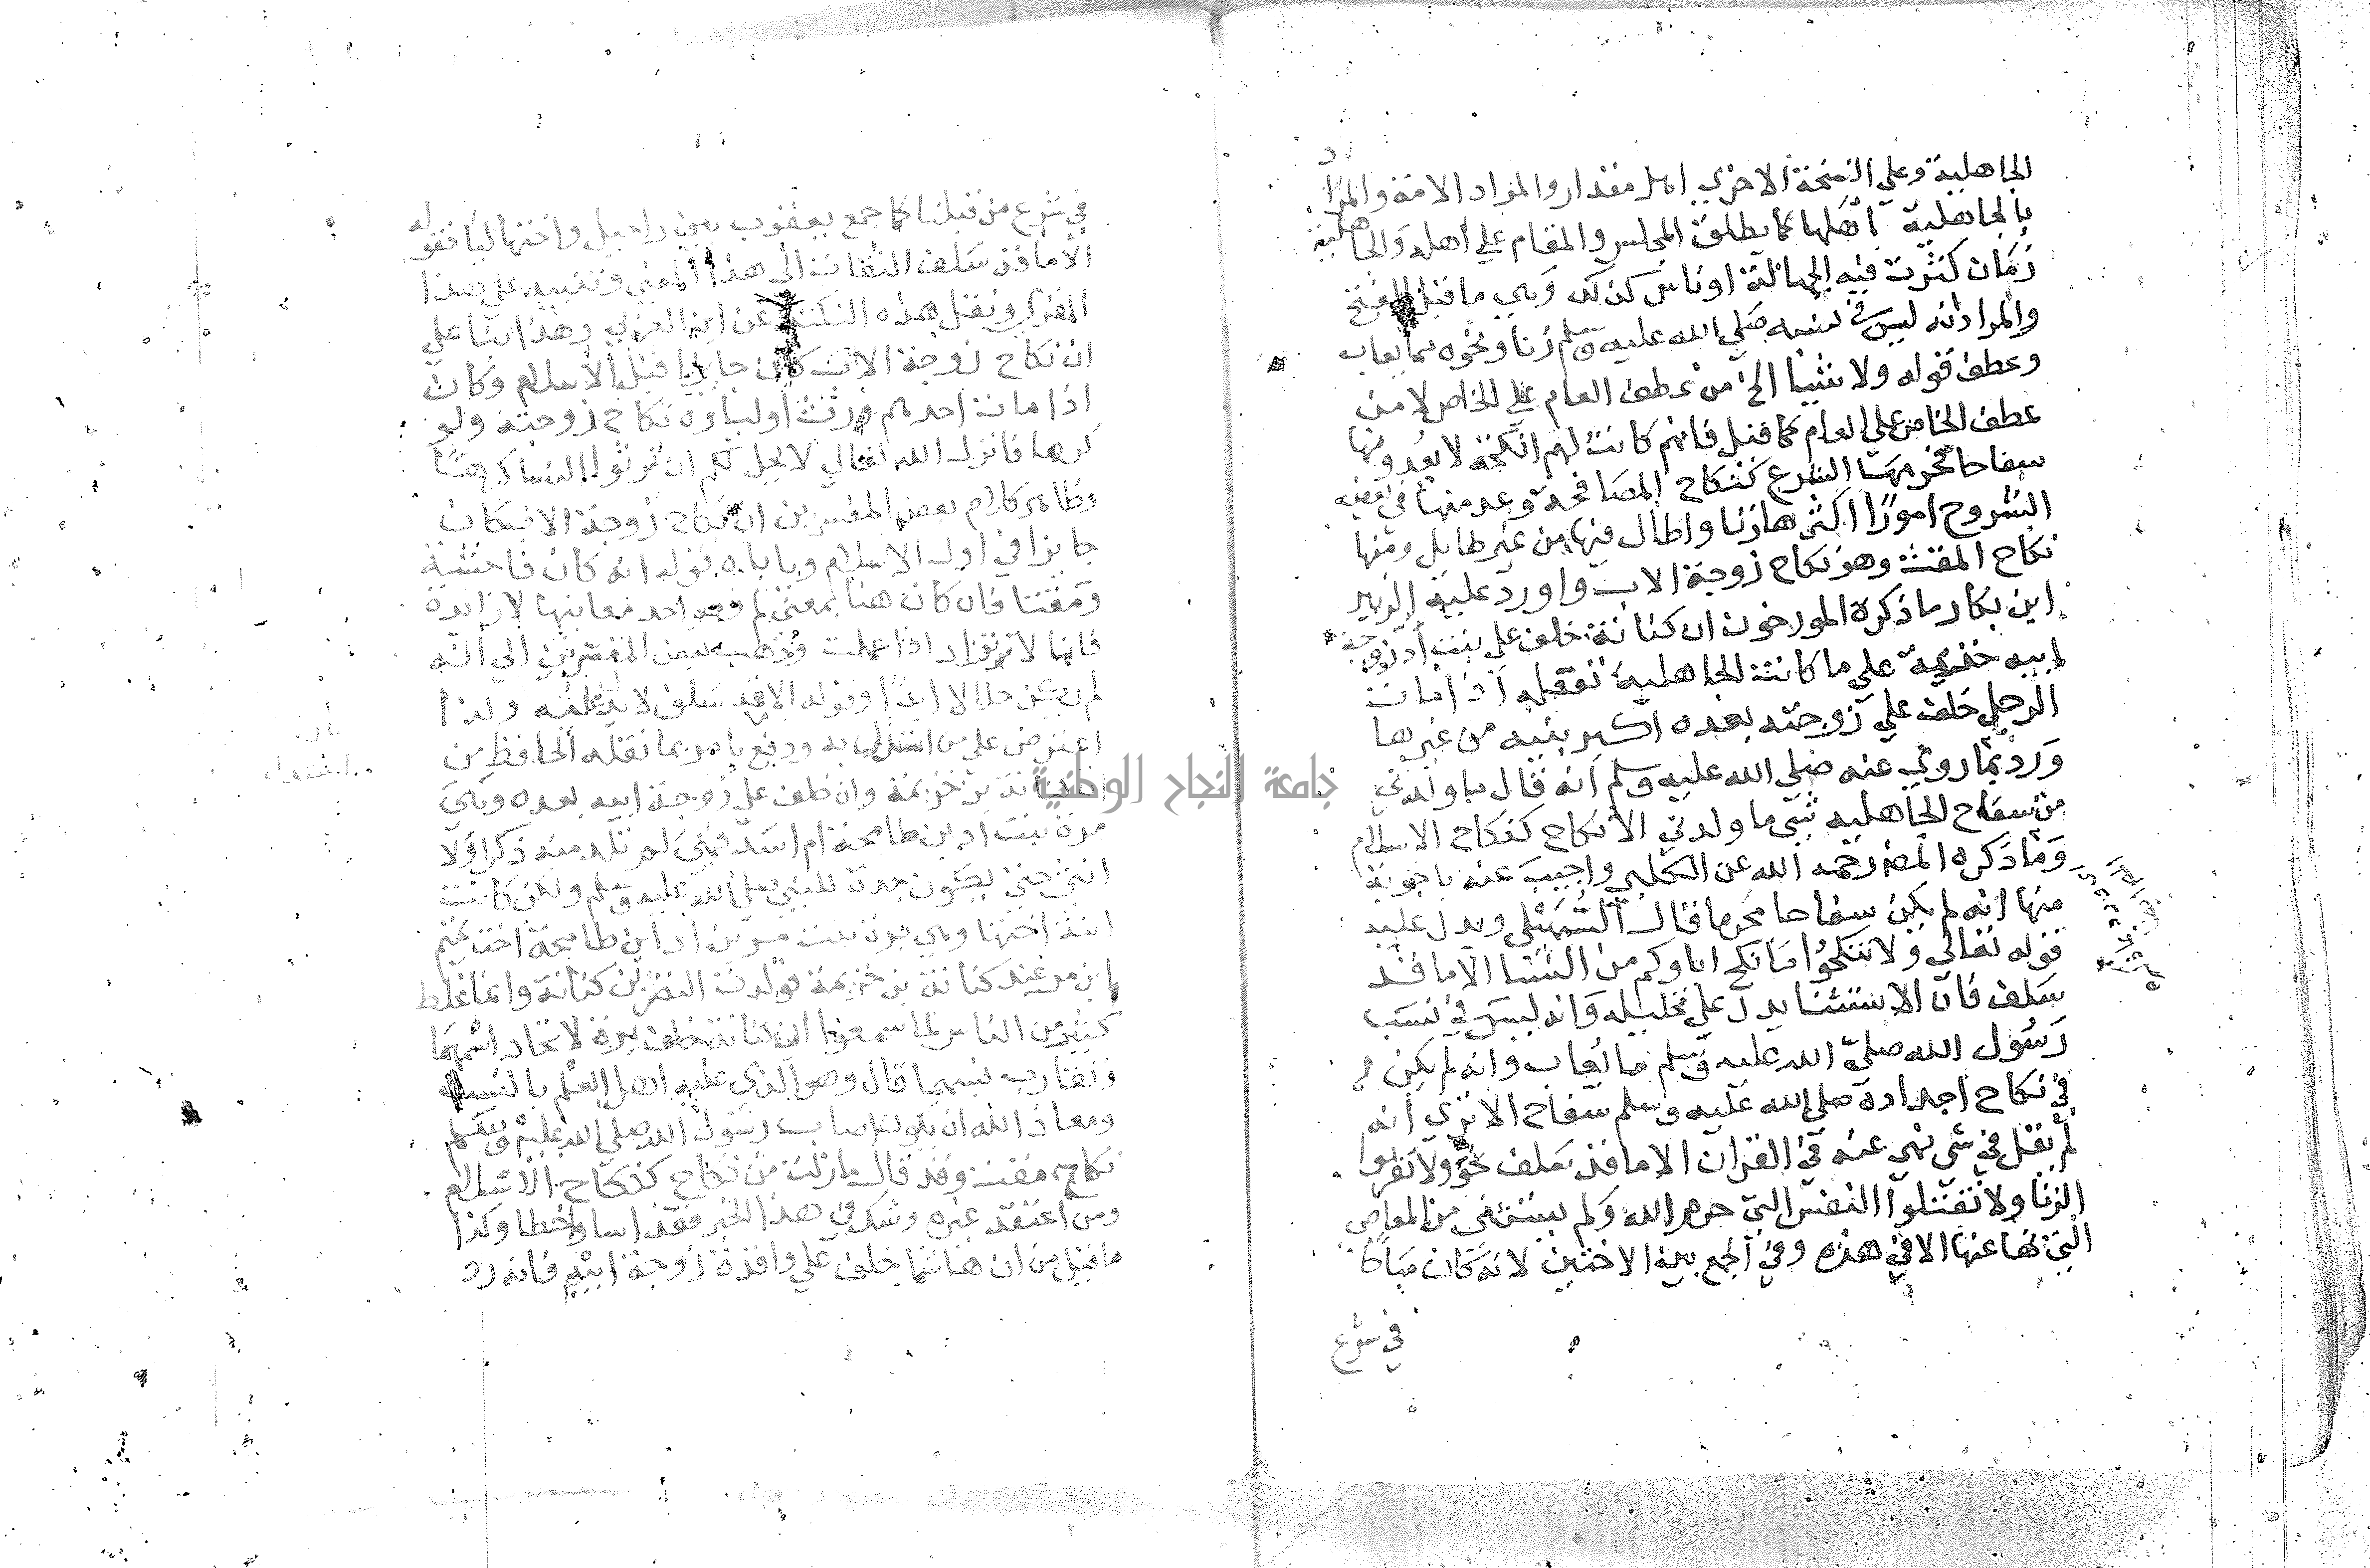 الجاهلية وعلي النسخة الاخري اهل مقدار والمراد الامة والمراد
بالجاهلية اهلها كما يطلق المجلس والمقام علي اهله والجاهلية
زمان كثرت فيه الجهالة او ناس كذلك وهي ما قبل الفتح
والمراد انه ليس في نسبه صلي الله عليه وسلم زنا ونحوه مما يعاب
وعطف قوله ولا شيا الخ من عطف العام علي الخاص لا من
عطف الخاص علي العام كما قيل فانهم كانت لهم انكحة لا يعدونها
سفاحا تحرمها الشرع كنكاح المصافحة وعد منها في بعض
الشروح امورا اكثرها زنا واطال فيها من غير طايل ومنها
نكاح المقت وهو نكاح زوجة الاب واورد عليه الزبير
ابن بكار ما ذكره المورخون ان كنانة خلف علي بنت أد زوجة
ابيه خزيمة علي ما كانت الجاهلية تفعله اذا مات
الرجل خلف علي زوجته بعده اكبر بنيه من غيرها
ورد بما روي عنه صلي الله عليه وسلم انه قال ما ولدني
من سفاح الجاهلية شي ما ولدني الا نكاح كنكاح الاسلام
وما ذكره المص رحمه الله عن الكلبي واجيب عنه باجوبة
منها انه لم يكن سفاحا محرما قال السهيلي ويدل عليه
قوله تعالي ولا تنكحوا ما نكح اباوكم من النسا الا ما قد
سلف فان الاستثنا يدل علي تحليله وانه ليس في نسب
رسول الله صلي الله عليه وسلم ما يعاب وانه لم يكن
في نكاح اجداده صلي الله عليه وسلم سفاح الا تري انه
لم يقل في شي نهي عنه في القران الا ما قد سلف نحو ولا تقربوا
الزنا ولا تقتلوا النفس التي حرم الله ولم يستثن في من المعاصي
التي نها عنها الا في هذه وفي الجمع بين الاختين لانه كان مباحا
في شرع
في شرع من قبلنا كما جمع يعقوب بين راحيل واختها ليا فقوله
الا ما قد سلف التفات الي هذا المعني وتنبيه علي هذا
المغزي ونقل هذه النكتة عن ابن العربي وهذا بنا علي
ان نكاح زوجة الاب كان جايزا قبل الاسلام وكان
اذا مات احدهم ورث اولياوه نكاح زوجته ولو
كرها فانزل الله تعالي لا يحل لكم ان ترثوا النسا كرها
وظاهر كلام بعض المفسرين ان نكاح زوجة الاب كان
جايزا في اول الاسلام وياباه قوله انه كان فاحشة
ومقتا فان كان هنا بمعني لم احد معانيها لا زايدة
فانها لا تزاد اذا عملت وذهب بعض المفسرين الي انه
لم يكن حلالا ابدا وقوله الا ما قد سلف لا ولذا
اعترض علي من استدل به ودفع بما نقله الحافظ من
ان كنانة بن خزيمة وان خلف علي زوجة ابيه بعده وهي
مرة بنت اد بن طابخة ام اسد فهي لم تلد منه ذكرا ولا
انثي حتي يكون جدة للنبي صلي الله عليه وسلم ولكن كانت
ابنة اختها وهي برة بنت مر بن اد ابن طابخة اخت تميم
ابن مر عند كنانة بن خزيمة فولدت النضر بن كنانة وانما غلط
كثير من الناس لما سمعوا ان كنانة خلف برة لاتحاد اسمهما
وتقارب نسبهما قال وهو الذي عليه اهل العلم بالنسب
ومعاذ الله ان يكون اصاب رسول الله صلي الله عليه وسلم
نكاح مقت وقد قال ما زلت من نكاح كنكاح الاسلام
ومن اعتقد غيره وشك في هذا الخبر فقد اسا واخطا وكذا
ما قيل من ان هاشما خلف علي واقدة زوجة ابيه فانه رد
جامعة النجاح الوطنية